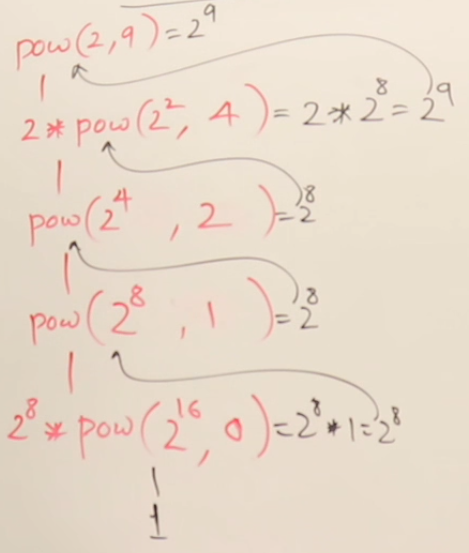 pow(2,9)=2⁹
2*pow(2², 4)=2*2⁸=2⁹
pow(2⁴, 2)=2⁸
pow(2⁸, 1)=2⁸
2⁸*pow(2¹⁶, 0)=2⁸*1=2⁸
1